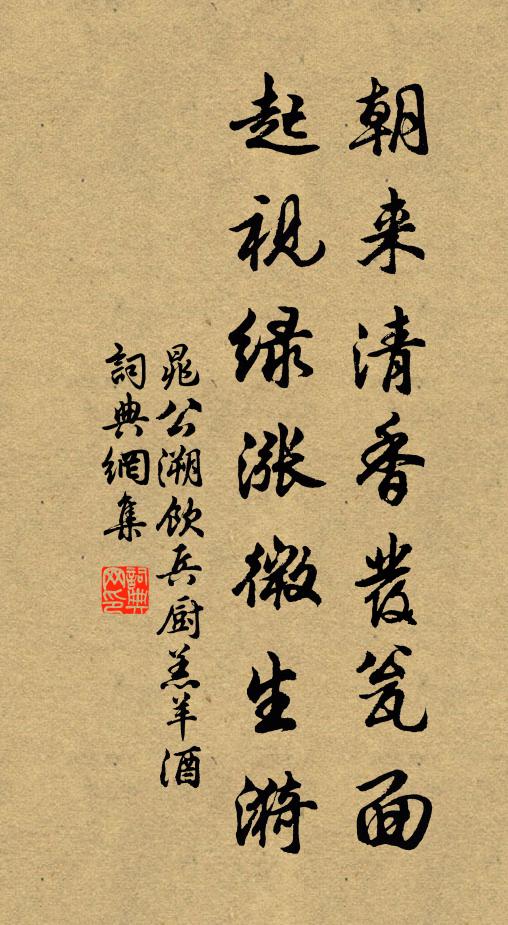 朝来清香發瓮面
起視绿漲微生漪
晁公溯飲兵厨羔羊酒
詞典網集
詞典网印